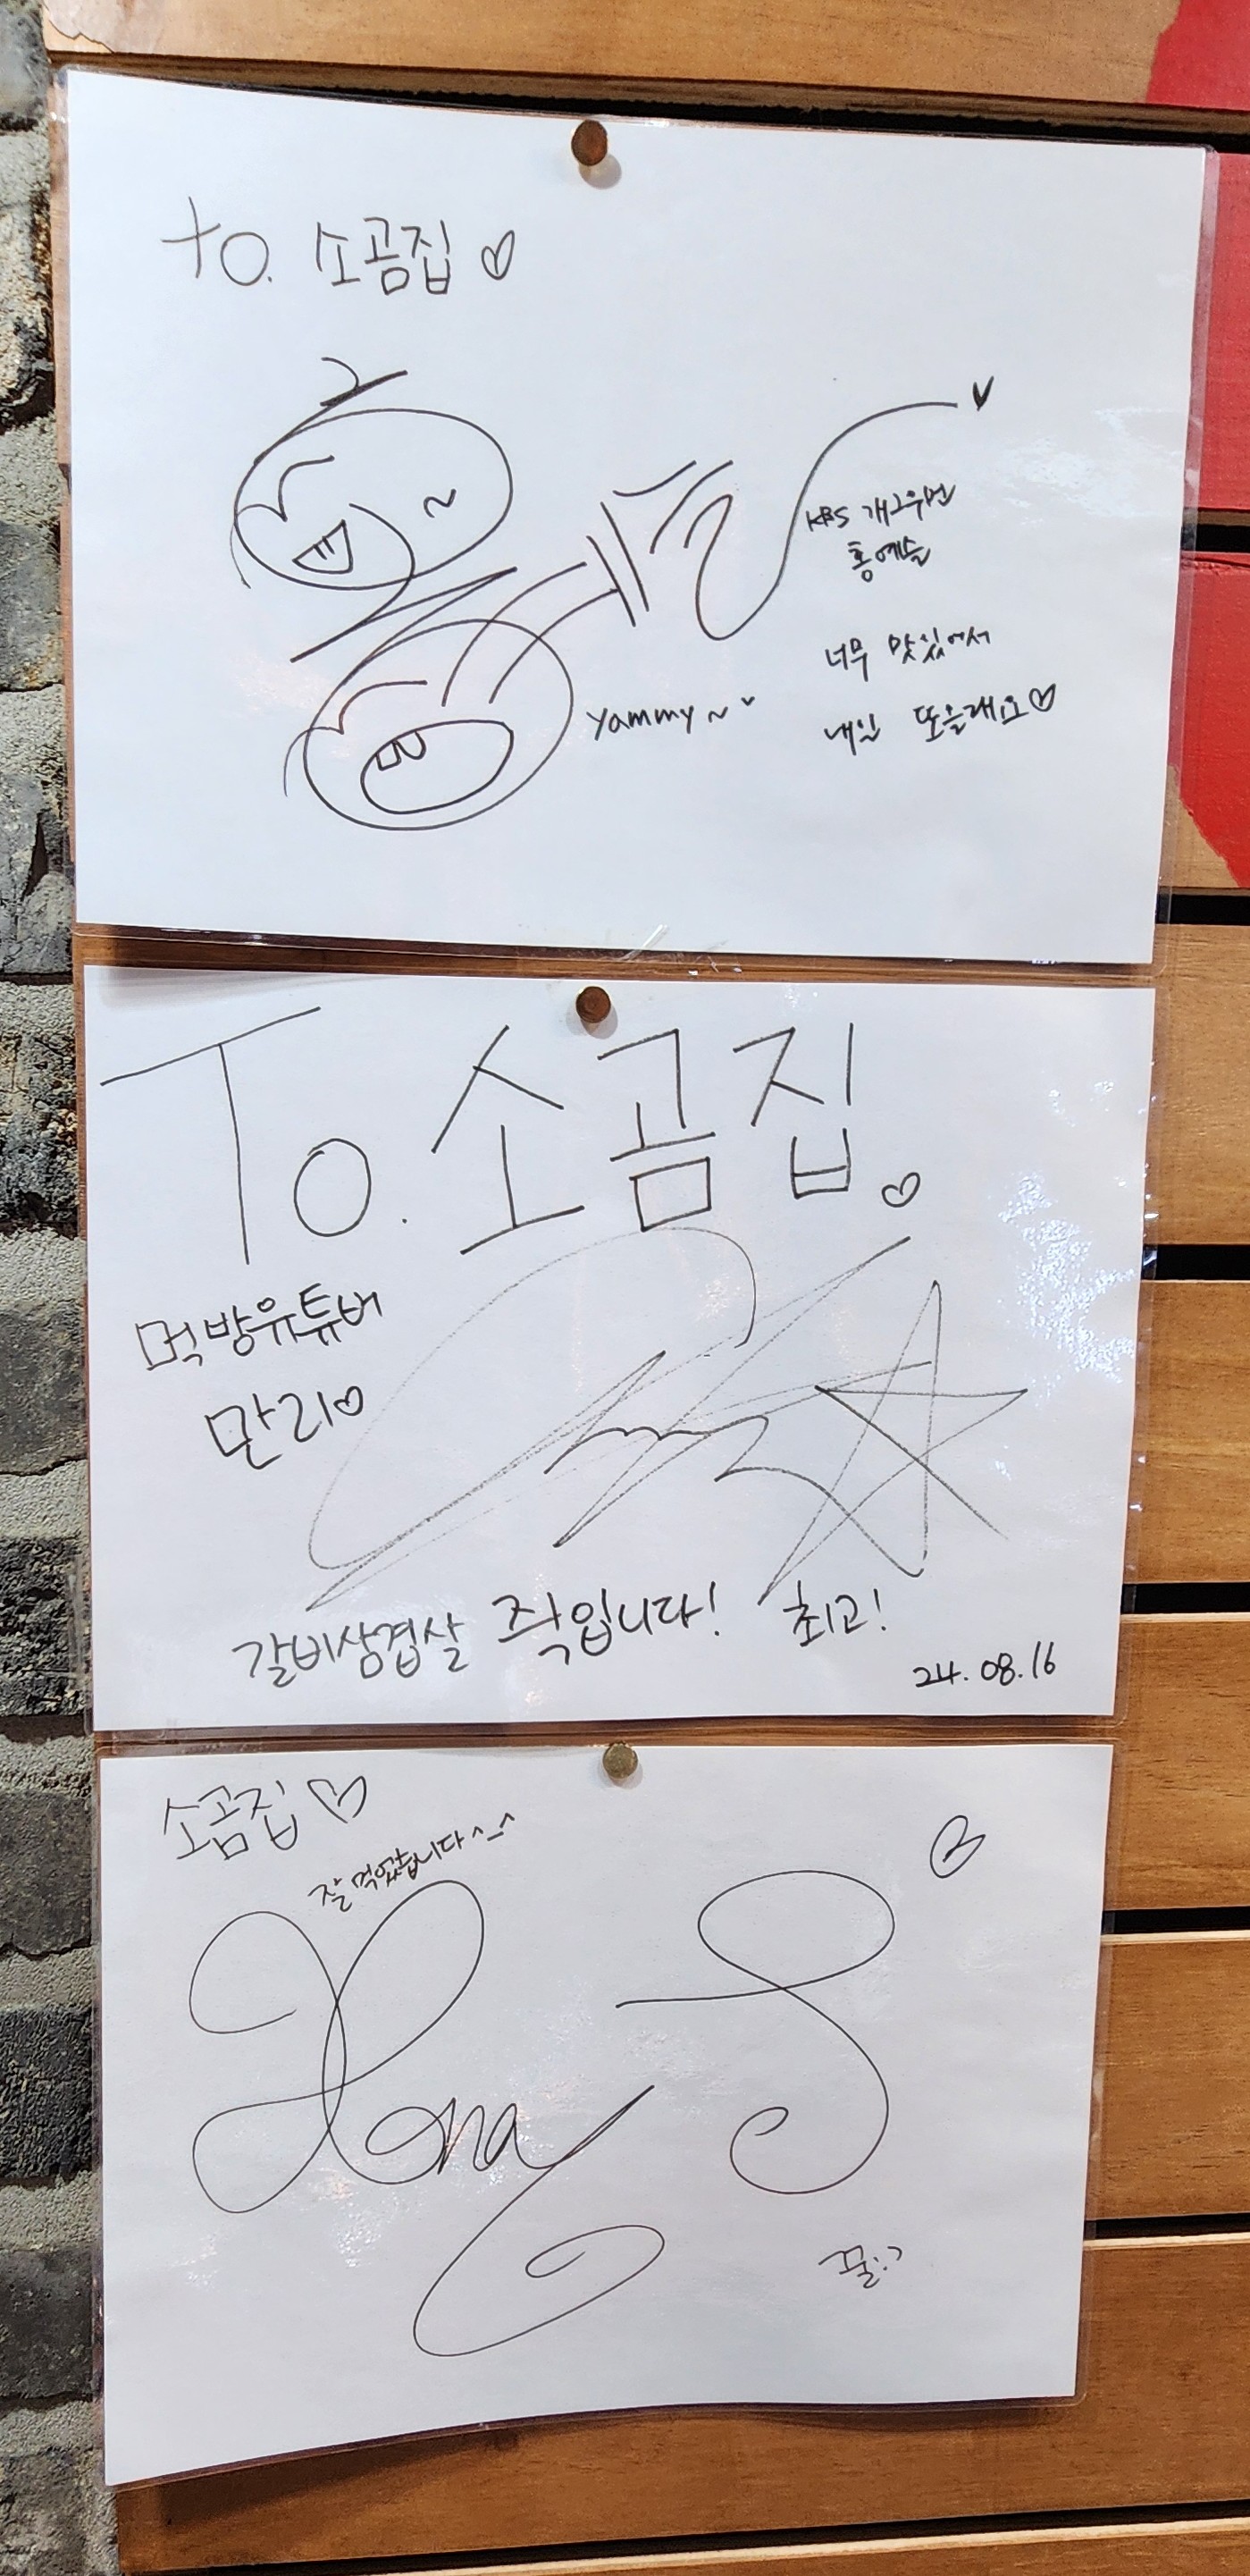 to. 소곰집♡
KBS 개그우먼
홍예슬
너무 맛있어서
yammy~
내일 또올래요♡
To. 소곰집♡
먹방유튜버
만리♡
갈비삼겹살 즉입니다! 최고!
24.08.16
소곰집♡
잘 먹었습니다^_^